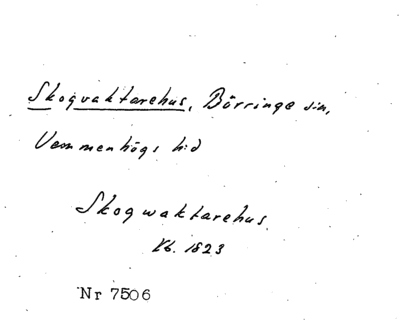 Skogvaktarehus, Börringe sn,
Vemmenhögs hd
Skogwaktarehus
Kb. 1823
Nr 7506